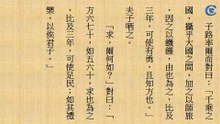 子路率爾而對曰：「千乘之
國，攝乎大國之間，加之以師旅
，因之以饑饉，由也為之，比及
三年，可使有勇，且知方也。」
夫子哂之。
「求，爾何如？」對曰：「
方六七十，如五六十，求也為之
，比及三年，可使足民，如其禮
樂，以俟君子。」